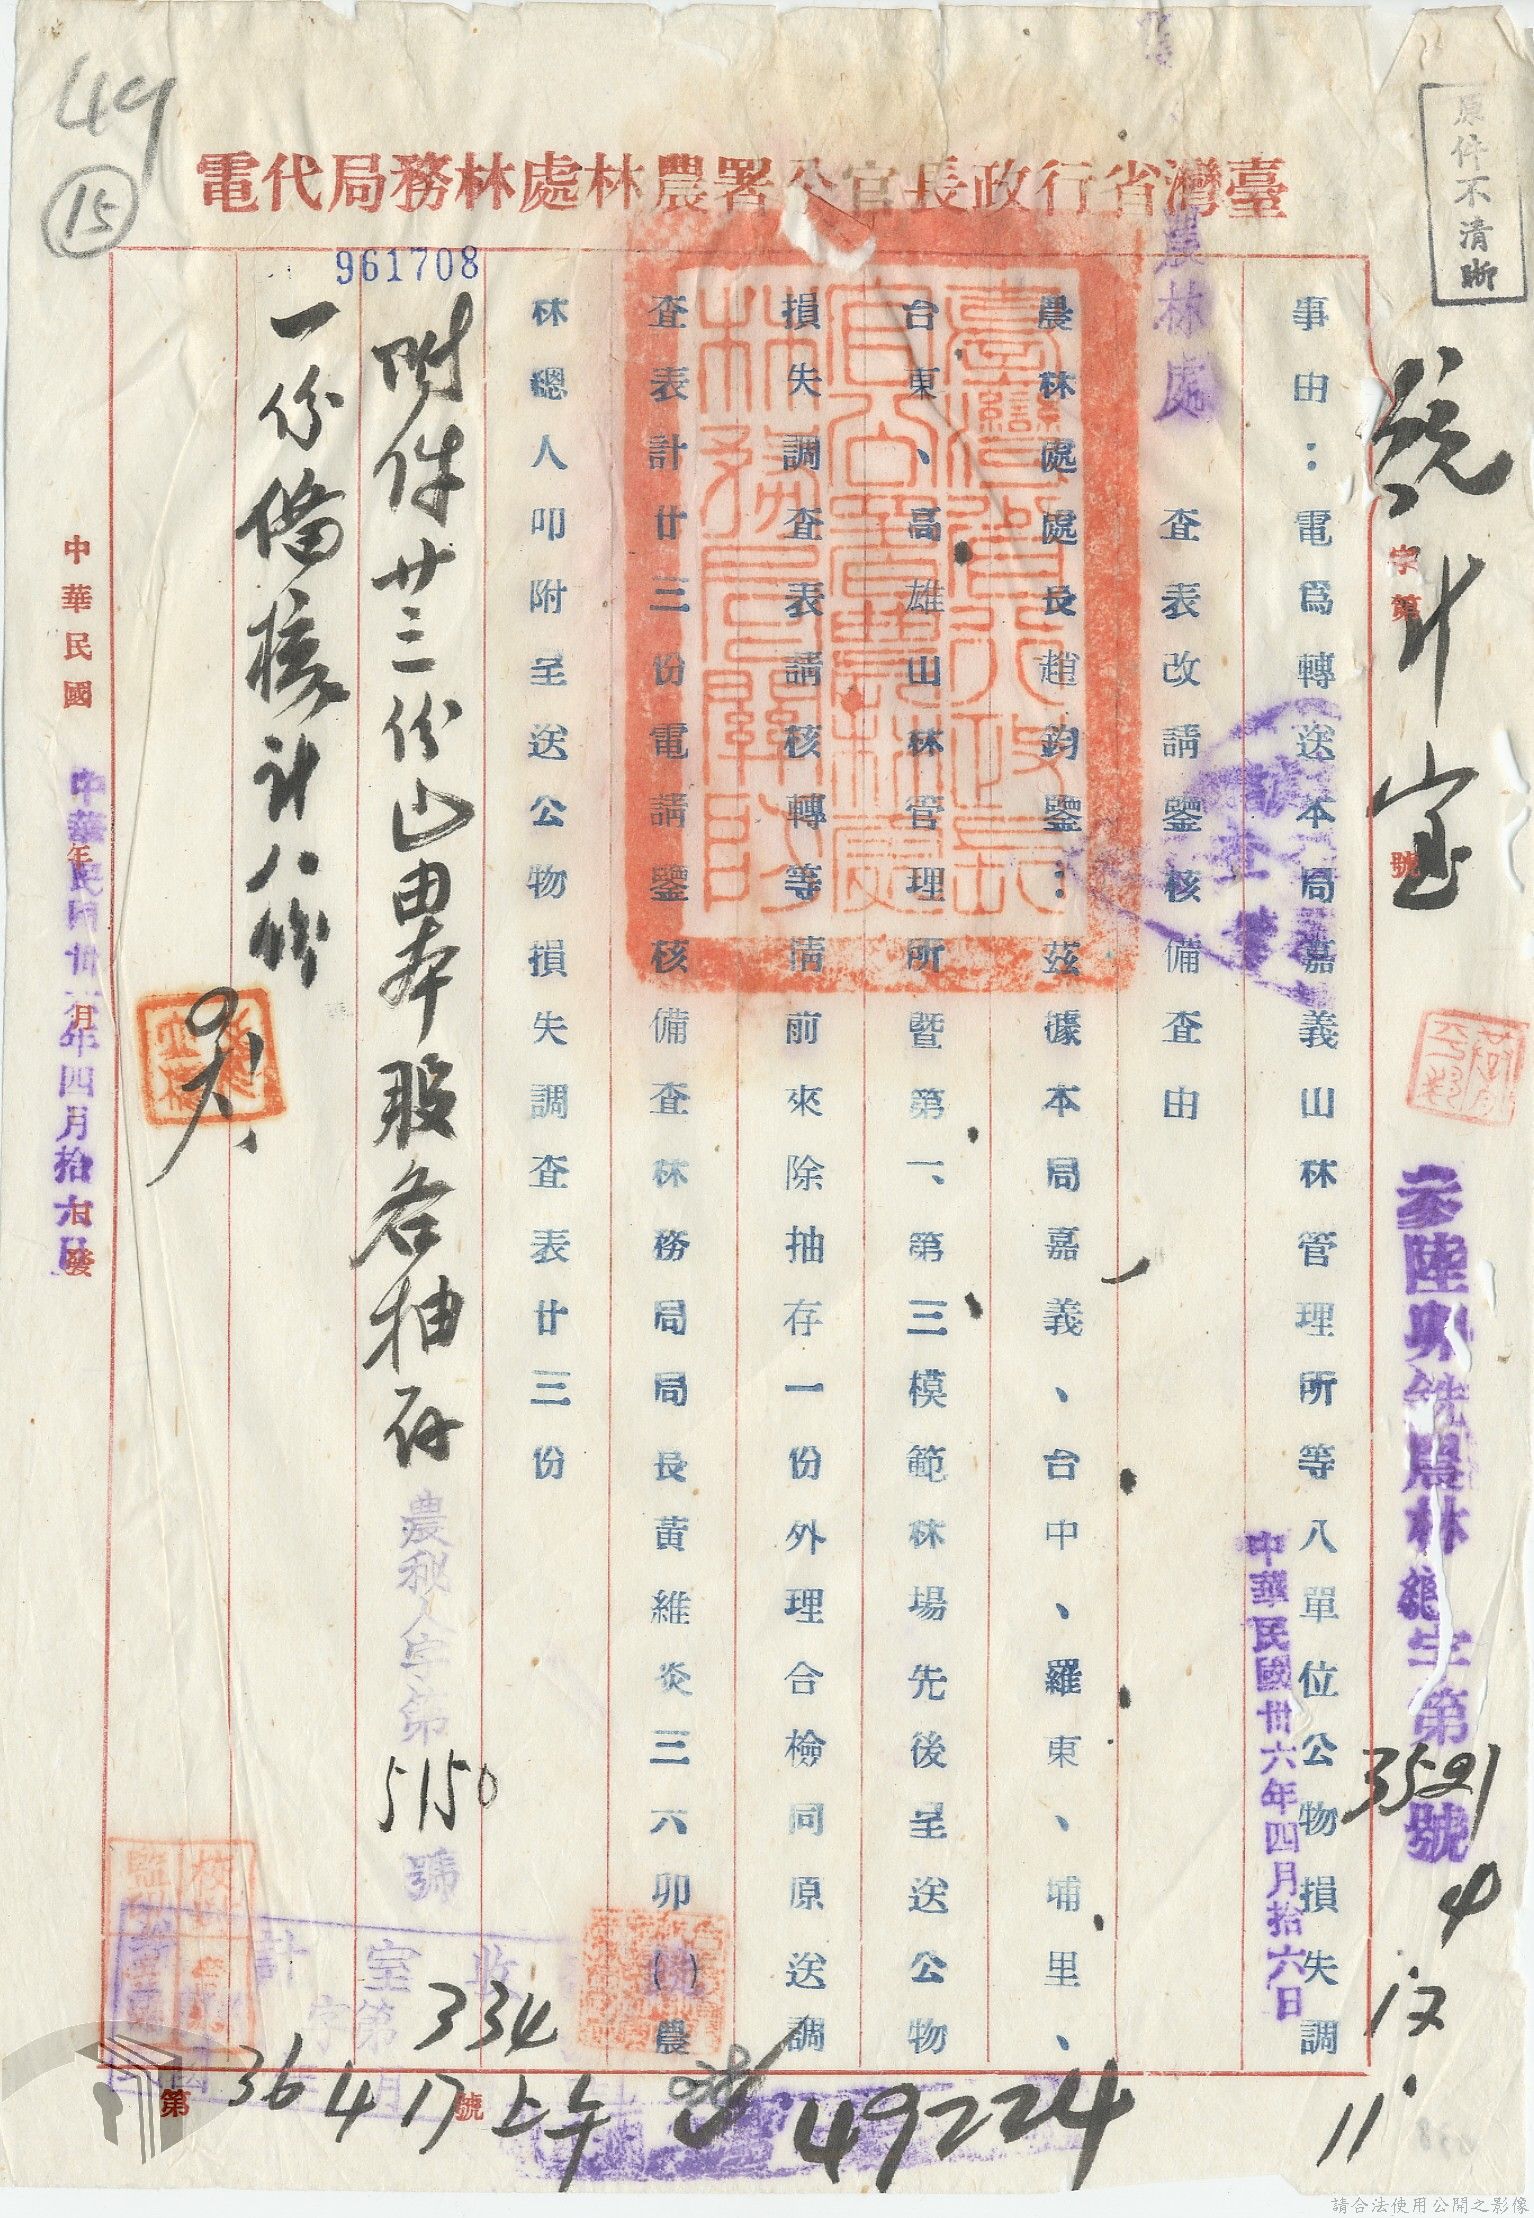 臺灣省行政長官公署農林處林務局代電
原件不清晰
49
15
961708
統計室
字第
號
參陸卯銑農林總字第3521號
事由:電爲轉送本局嘉義山林管理所等八單位公物損失調
查表改請鑒核備查由
農林處
中華民國卅六年四月拾六日
農林處處長趙鈞鑒:茲據本局嘉義、台中、羅東、埔里、
台東、高雄山林管理所暨第一、第三模範林場先後呈送公物
損失調查表請核轉等情前來除抽存一份外理合檢同原送調
查表計廿三份電請鑒核備查林務局局長黃維炎三六卯( )農
林總人叩附呈送公物損失調查表廿三份
附件廿三份由本股各抽存
一份備核計八份
農秘人字第5150號
中華民國 年 月 日發
中華民國卅六年四月拾六日
收
室
計
字第
334
36 4 17 上午
第
號
49224